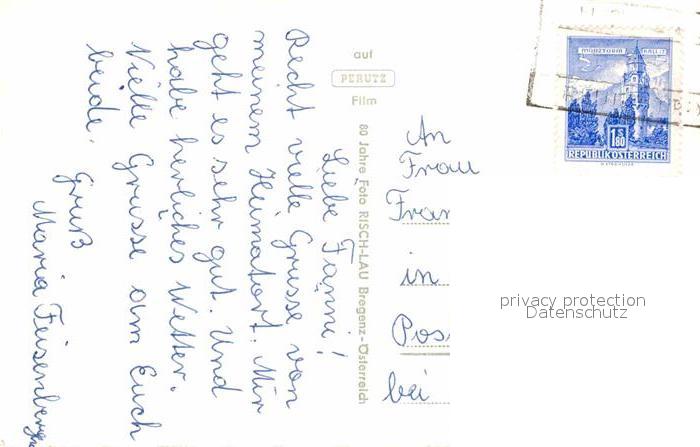 Liebe Fanni!
Recht vielle Grüsse von
meinem Heimatort. Mir
geht es sehr gut. Und
habe herrliches Wetter.
Vielle Grüsse an Euch
beide.
Gruß
Maria
auf
PERUTZ
Film
80 Jahre Foto RISCH-LAU Bregenz-Österreich
An
Frau
Fran
in
Pos
bei
MÜNZTURM HALL i.T.
S 1.80
REPUBLIK ÖSTERREICH
privacy protection
Datenschutz